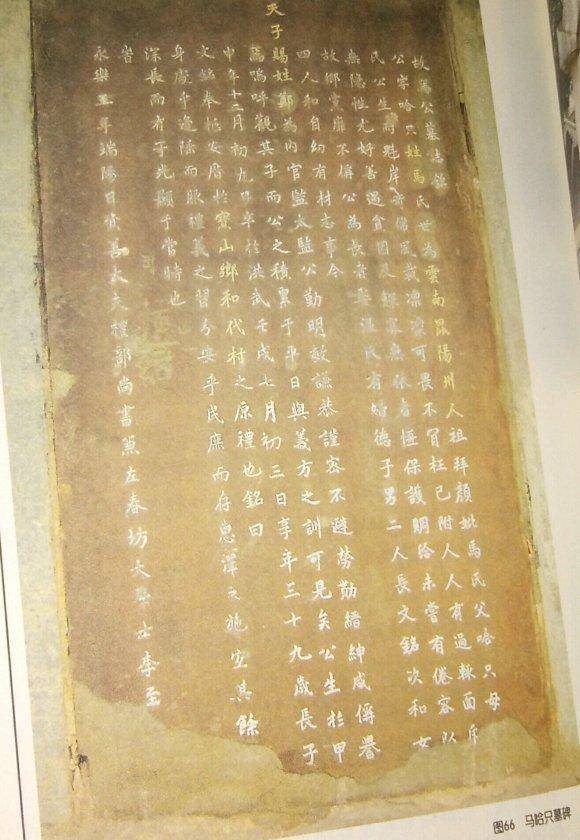 故馬公墓誌銘
公字哈只姓馬氏世為雲南昆陽州人祖拜顏妣馬氏父哈只母
氏公生而魁岸奇偉風裁凜凜可畏不肯枉己附人人有過輒面斥
無隱性尤好善遇貧困及鰥寡無依者恆保護賙給未嘗有倦容以
故鄉黨靡不稱公為長者娶溫氏有婦德子男二人長文銘次和女
四人和自幼有材志事今
天子賜姓鄭為內官監太監公勤明敏謙恭謹密不避勞勩縉紳咸偁譽
焉嗚呼觀其子而公之積累于平日與義方之訓可見矣公生於甲
申年十二月初九日卒於洪武壬戌七月初三日享年三十九歲長子
文銘奉柩安厝於寶山鄉和代村之原禮也銘曰
身處乎邊陲而服禮義之習分安乎民庶而存惠澤之施宜其餘
深長而有子光顯于當時也
旹
永樂三年端陽日資善大夫禮部尚書兼左春坊大學士李至
图66 马哈只墓碑